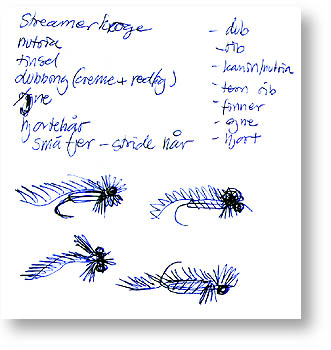 Streamerkroge
nutria
tinsel
dubbing (creme +
øjne
hjortehår
små fjer - stride hår
- dub
- rib
- kanin/nutria
- rib
- finner
- øjne
- hjort